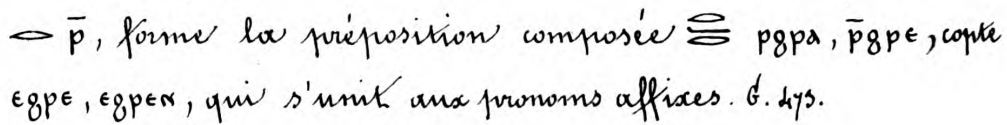 𓂋 ⲣ̄, forme la préposition composée ⲣϩⲣⲁ, ⲣ̄ϩⲣⲉ, copte
ⲉϩⲣⲉ, ⲉϩⲣⲉⲛ, qui s'unit aux pronoms affixes. G. 473.